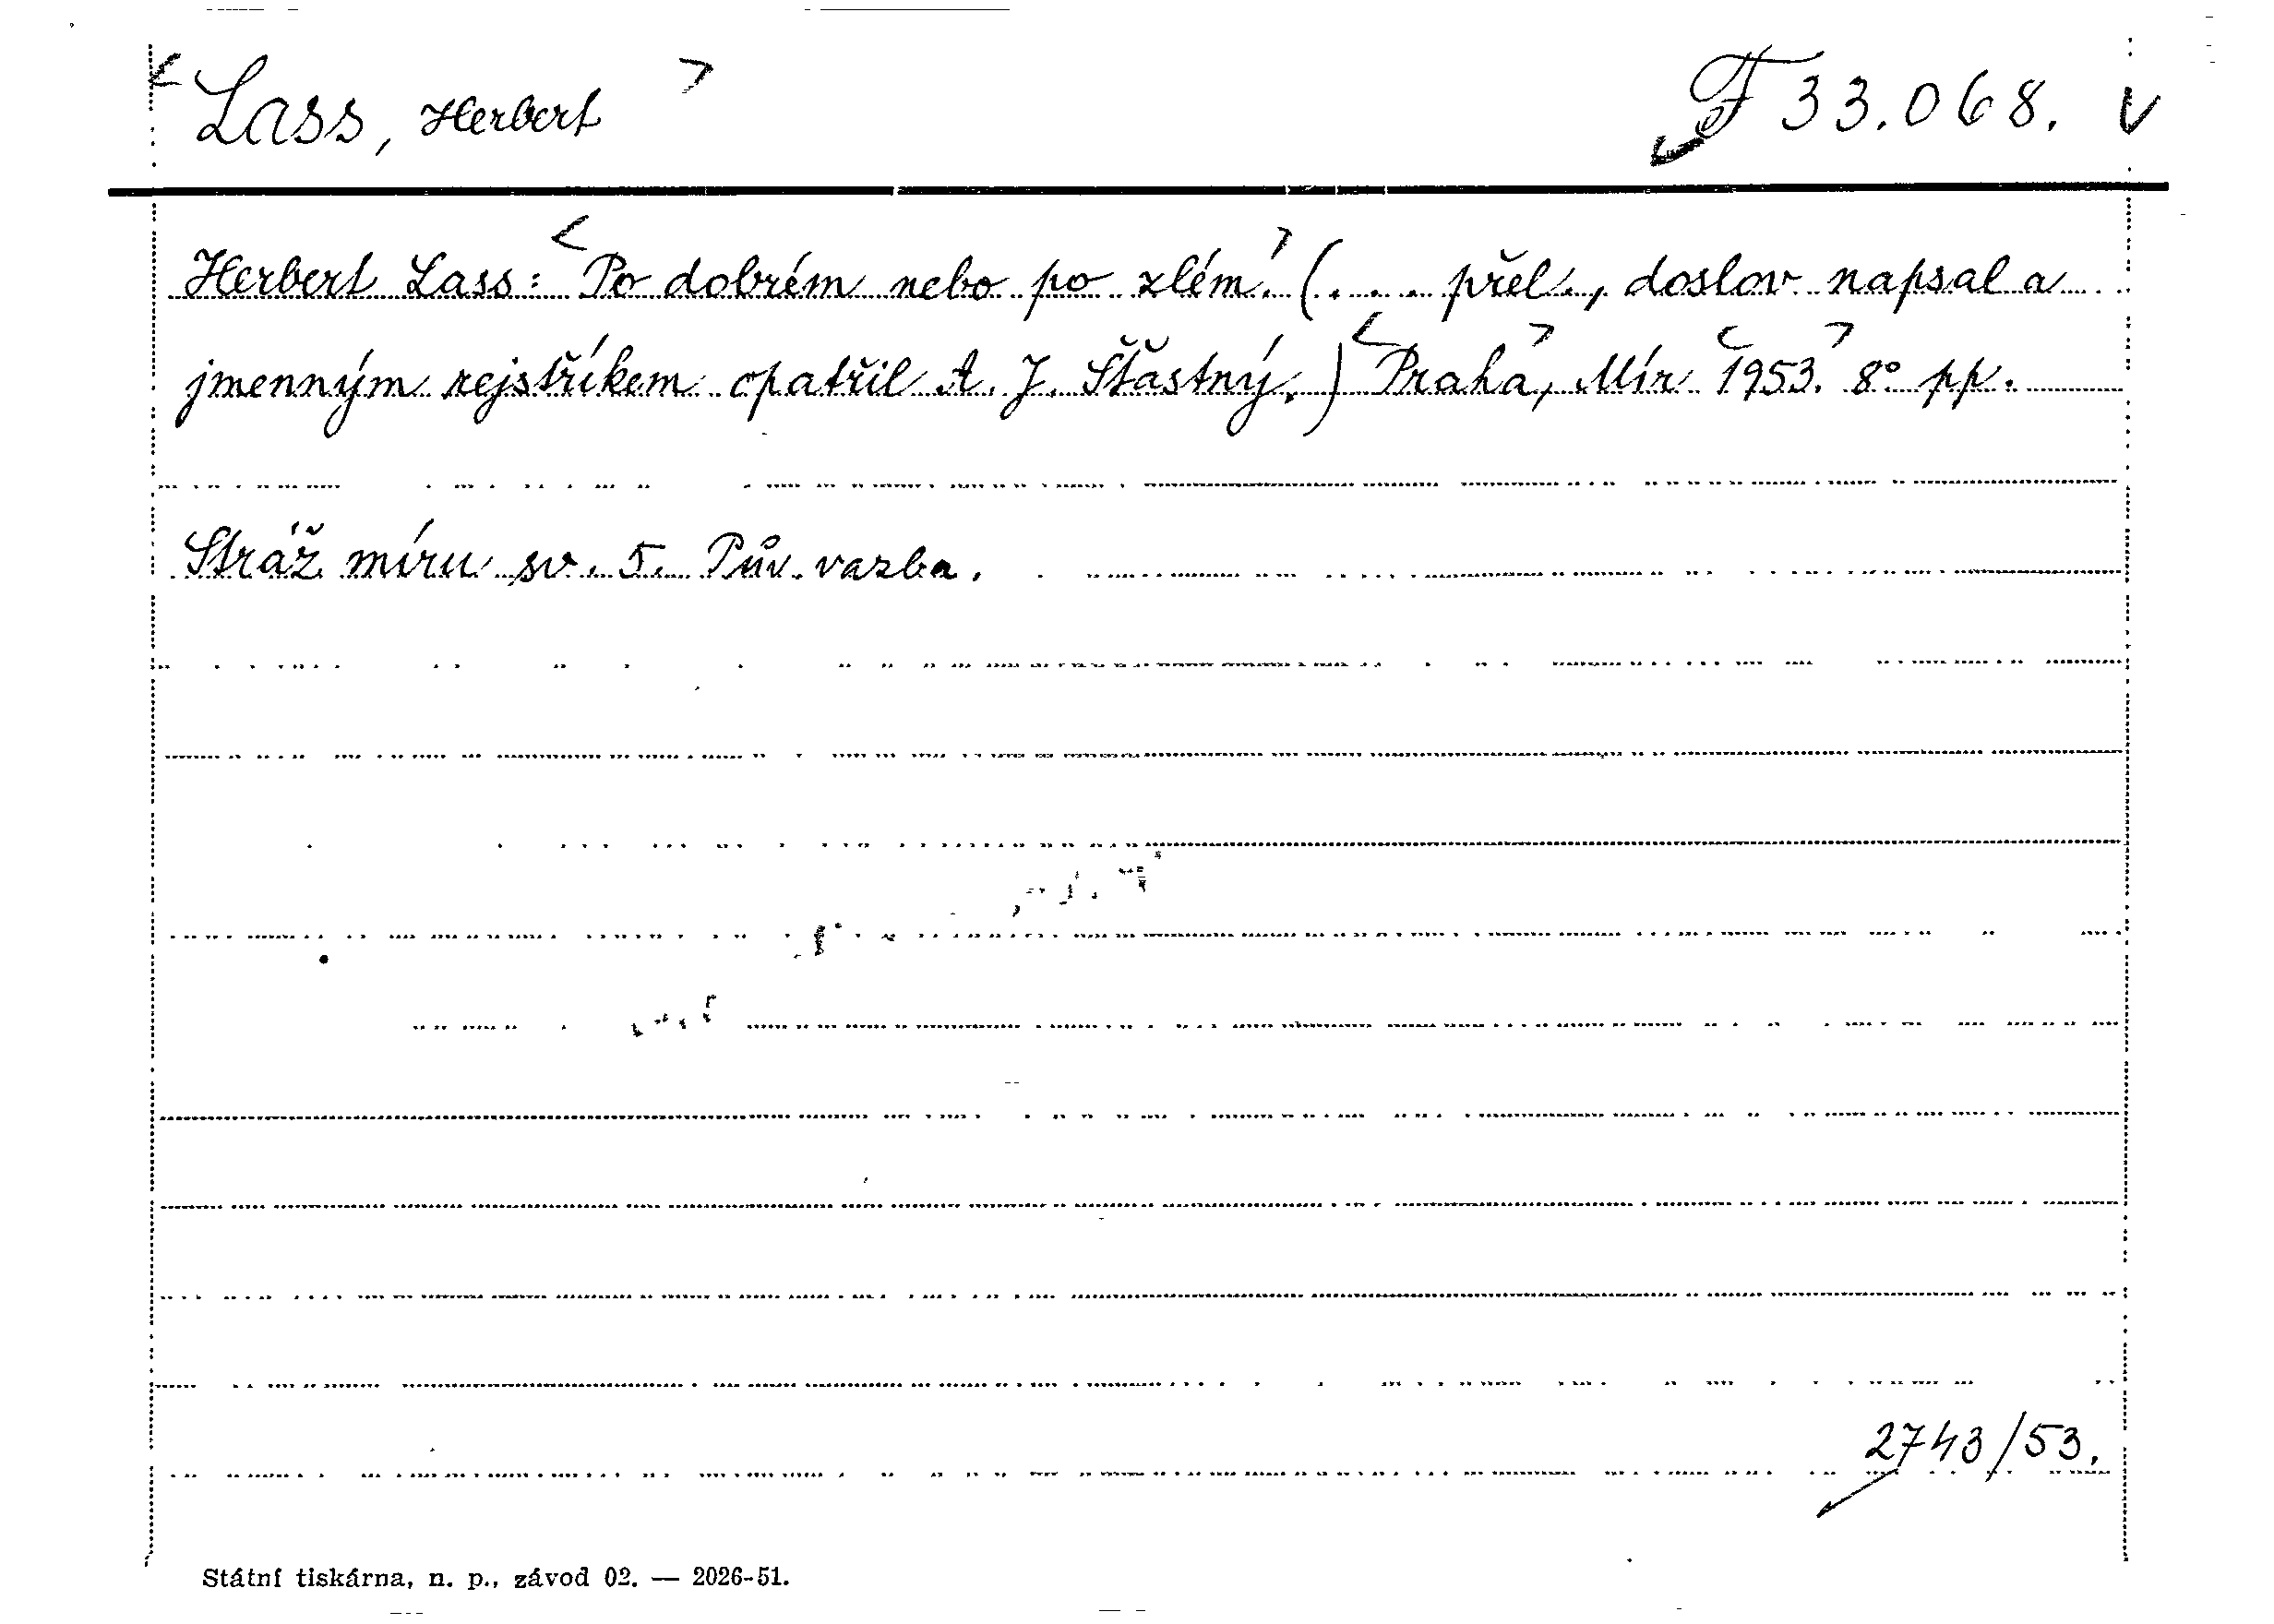 < Lass, Herbert > F 33.068. v
Herbert Lass: <Po dobrém nebo po zlém.> (.... přel., doslov napsal a
jmenným rejstříkem opatřil A. J. Šťastný.) <Praha>, Mír <1953.> 8° pp.
Stráž míru sv. 5. Pův. vazba.
2743/53.
Státní tiskárna, n. p., závod 02. — 2026-51.